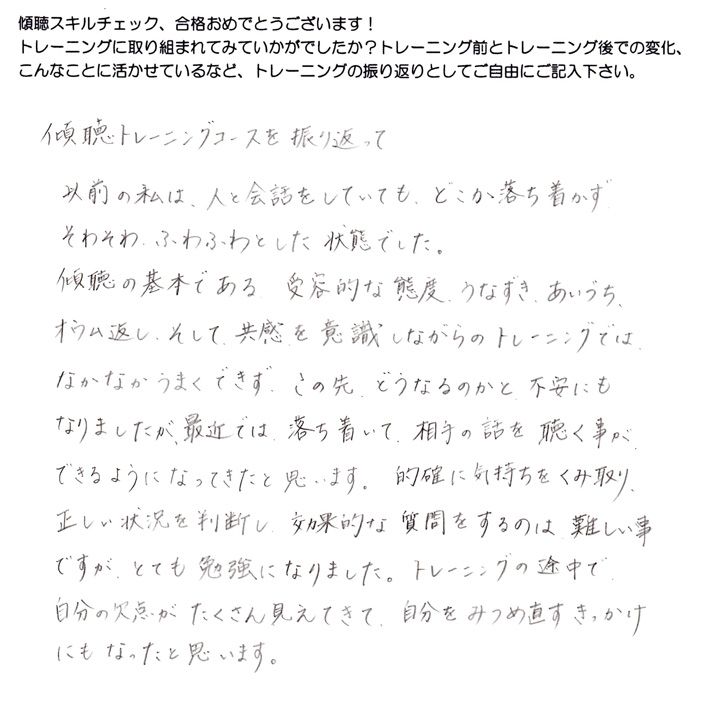 傾聴スキルチェック、合格おめでとうございます！
トレーニングに取り組まれてみていかがでしたか？トレーニング前とトレーニング後での変化、
こんなことに活かせているなど、トレーニングの振り返りとしてご自由にご記入下さい。
傾聴トレーニングコースを振り返って
以前の私は、人と会話をしていても、どこか落ち着かず
そわそわ、ふわふわとした状態でした。
傾聴の基本である、受容的な態度、うなずき、あいうち、
オウム返し、そして、共感を意識しながらのトレーニングでは、
なかなかうまくできず、この先、どうなるのかと、不安にも
なりましたが、最近では、落ち着いて、相手の話を聴く事が、
できるようになってきたと思います。的確に気持ちをくみ取り、
正しい状況を判断し、効果的な質問をするのは、難しい事
ですが、とても勉強になりました。トレーニングの途中で、
自分の欠点がたくさん見えてきて、自分をみつめ直すきっかけ
にもなったと思います。